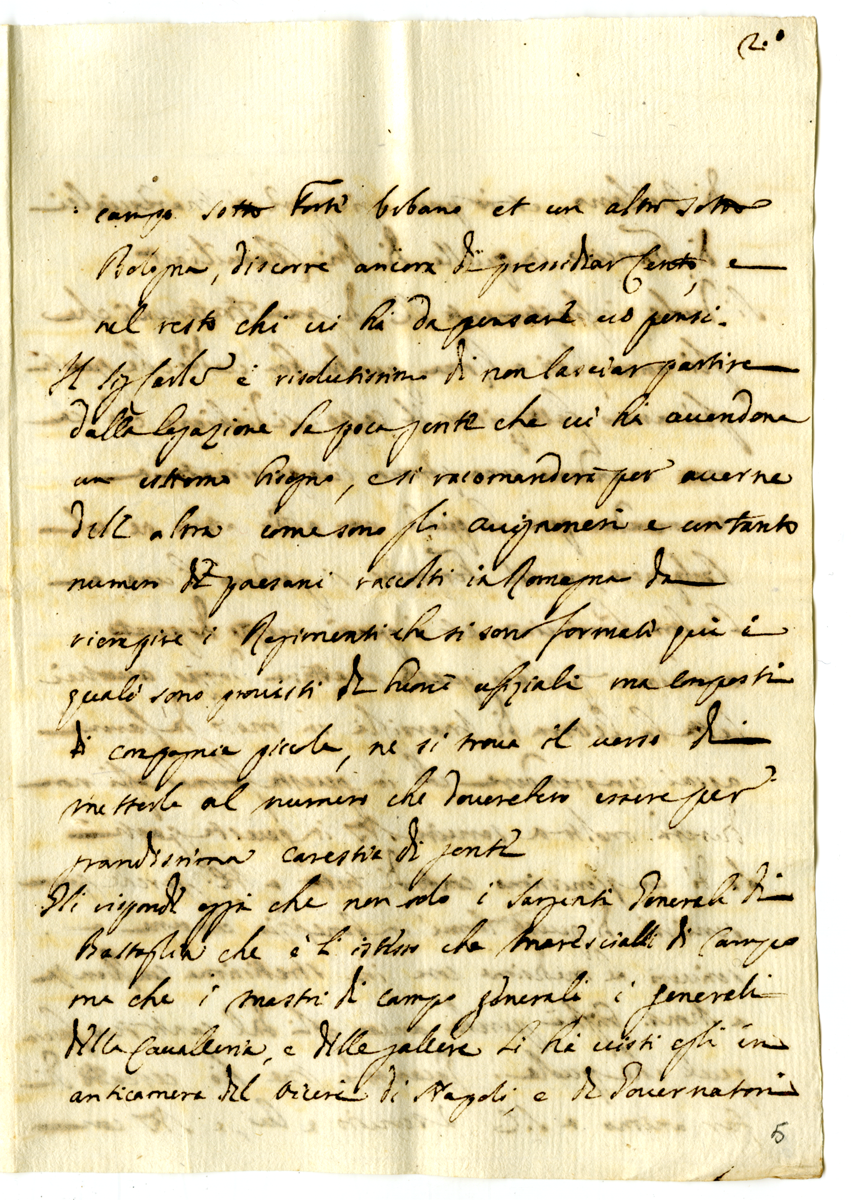 2.°
campo sotto Forte Urbano et un altro sotto
Bologna, discorre ancora di pressidiar Cento, e
nel resto chi vi ha da pensare vo pensi.
Il Sig Carlo è risolutissimo di non lasciar partire
dalla legazione la poca gente che vi ha avendone
un estremo bisogno, e si racomanderà per averne
dell altra come sono gli Avignonesi e un tanto
numero di paesani raccolti in Romagna da
riempire i Regimenti che si sono formati qui i
quali sono provisti di buoni uffiziali ma composti
di compagnie piccole, ne si trova il verso di
metterle al numero che doverebero essere per
grandissima carestia di gente
Gli rispondi che non solo i Sargenti Generali di
Battaglia che è l istesso che Marescialli di Campo
ma che i mastri di campo generali i generali
della Cavalleria, e delle gallere li ha visti egli in
anticamera del Vicere di Napoli, e di Governatori
5